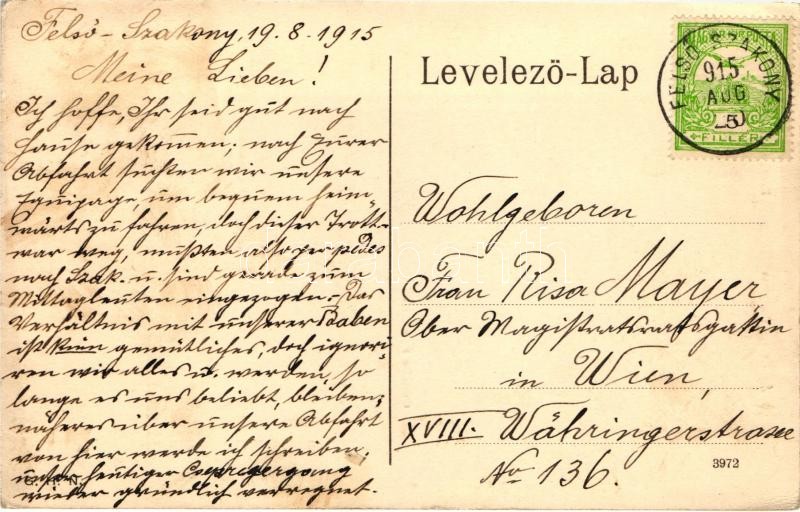 Felsö-Szakony, 19.8.1915
Meine Lieben!
Ich hoffe, Ihr seid gut nach
Hause gekommen; nach Eurer
Abfahrt suchten wir unsere
Equipage, um bequem heim-
wärts zu fahren, doch dieser Trott-
war weg, mußten also per pedes
nach Szak. u. sind gerade zum
Mittagleuten eingezogen. – Das
Verhältnis mit unserer
ist kein gemütliches, doch ignori-
ren wir alles u. werden, so
lange es uns beliebt, bleiben;
näheres über unsere Abfahrt
von hier werde ich schreiben;
unser heutiger
wieder gründlich verregnet.
Levelező-Lap
MAGYAR KIR. POSTA
5 FILLÉR
FELSŐ SZAKONY
915
AUG
20
Wohlgeboren
Frau Risa Mayer
Ober Magistratsratsgattin
in Wien,
XVIII. Währingerstrasse
No 136.
3972